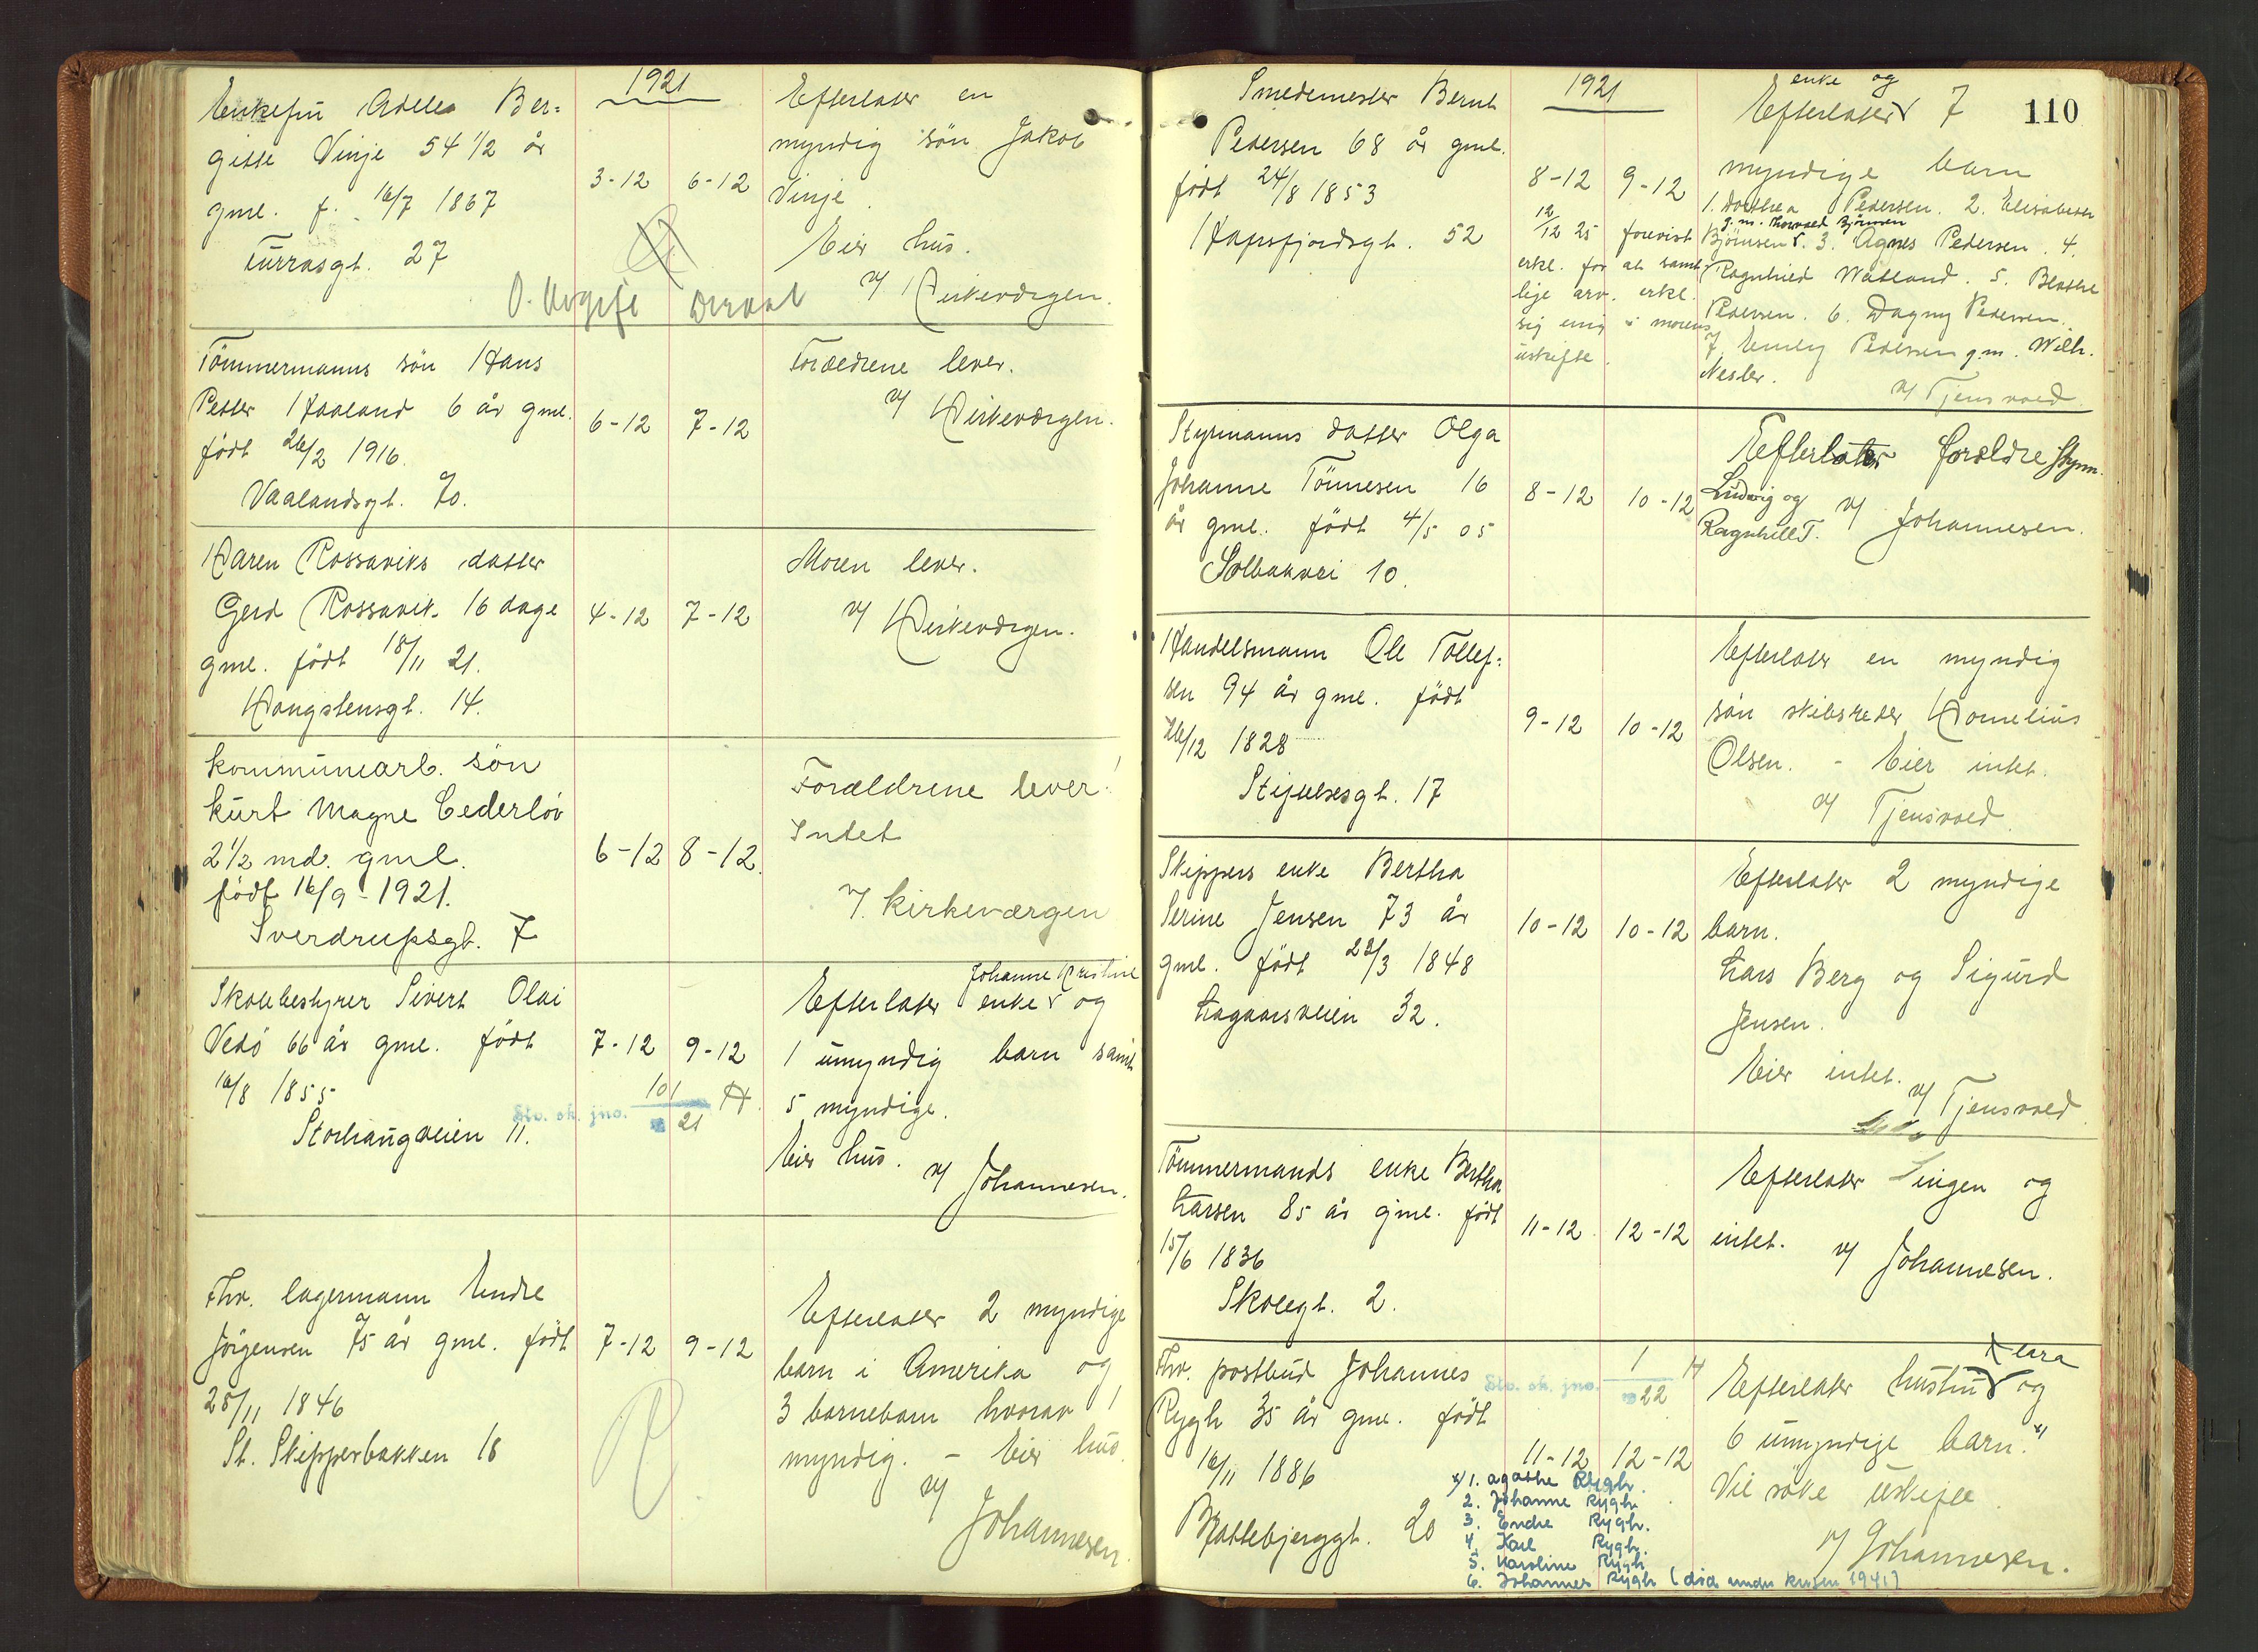 1921
Enkefru Adele Ber=
gitte Vinje 54 1/2 år
gml. f. 16/7 1867
Turrasgt. 27
3-12 6-12
Efterlater en
myndig søn Jakob
Vinje.
Eier hus.
v/ Kirkeværgen.
O.
Tömmermanns sön Hans
Petter Haaland 6 år gml.
født 26/2 1916.
Vaalandsgt. 70.
6-12 7-12
Forældrene lever.
v/ Kirkeværgen.
Karen Rossaviks datter
Gerd Rossavik 16 dage
gml. født 18/11 21.
Kongstensgt. 14.
4-12 7-12
Moren lever.
v/ Kirkeværgen.
Kommunearb. sön
Kurt Magne Cederlöv
2 1/2 md. gml.
födt 16/9-1921.
Sverdrupsgt. 7
6-12 8-12.
Forældrene lever!
Intet
v/ Kirkeværgen
Skolebestyrer Sivert Olai
Vedö 66 år gml. født
16/8 1855
Storhaugveien 11.
7-12 9-12
Stv. sk. jno. 101/21 H.
Johanne Kristine
Efterlater enke og
1 umyndig barn samt
5 myndige.
Eier hus.
v/ Johannesen.
Fhv. lagermann Endre
Jörgensen 75 år gml. født
28/11 1846
St. Skipperbakken 18
7-12 9-12
Efterlater 2 myndige
barn i Amerika og
3 barnebarn hvorav 1
myndig. - Eier hus.
v/
Johannesen.
110
1921
Smedemester Bernt
Pedersen 68 år gml.
født 24/8 1853
Hafrsfjordsgt. 52
8-12 9-12
12/12 25 forevist
erkl. for at samt-
lige arv. erkl.
sig enig i morens
uskifte.
enke og
Efterlater 7
myndige barn
1. Dorthea Pedersen. 2. Elisabeth
g.m. Thorvald Björnsen
Björnsen. 3. Agnes Pedersen. 4.
Ragnhild Watland. 5. Berthe
Pedersen. 6. Dagny Pedersen.
7. Emely Pedersen g.m. Wilh.
Nesler.
v/ Tjensvold.
Styrmanns datter Olga
Johanne Tönnesen 16
år gml. født 4/5 05
Solbakvei 10.
8-12 10-12
Efterlater foreldre Styrm.
Ludvig og
Ragnhild T. v/ Johannesen.
Handelsmann Ole Tollef=
sen 94 år gml. født
26/12 1828
Stiftelsesgt. 17
9-12 10-12
Efterlater en myndig
søn skibsreder Kornelius
Olsen. - Eier intet.
v/ Tjensvold
Skippers enke Bertha
Serine Jensen 73 år
gml. født 22/3 1848
Lagaardsveien 32.
10-12 10-12
Efterlater 2 myndige
barn.
Lars Berg og Sigurd
Jensen.
Eier intet.
v/ Tjensvold
Tömmermands enke Bertha
Larsen 85 år gml. født
15/6 1836
Skolegt. 2.
11-12 12-12
Efterlater ingen og
intet. v/ Johannesen.
Fhv. postbud Johannes
Rygh 35 år gml. født
16/11 1886
Blattebjerggt. 20
Stv. sk. jno. 1/22 H
11-12 12-12
Klara
Efterlater hustru og
6 umyndige barn. x)
Vil söke uskifte.
v/ Johannesen.
x) 1. Agathe Rygh.
2. Johanne Rygh
3. Endre Rygh.
4. Karl Rygh.
5. Karoline Rygh
6. Johannes Rygh (død under krigen 1941)